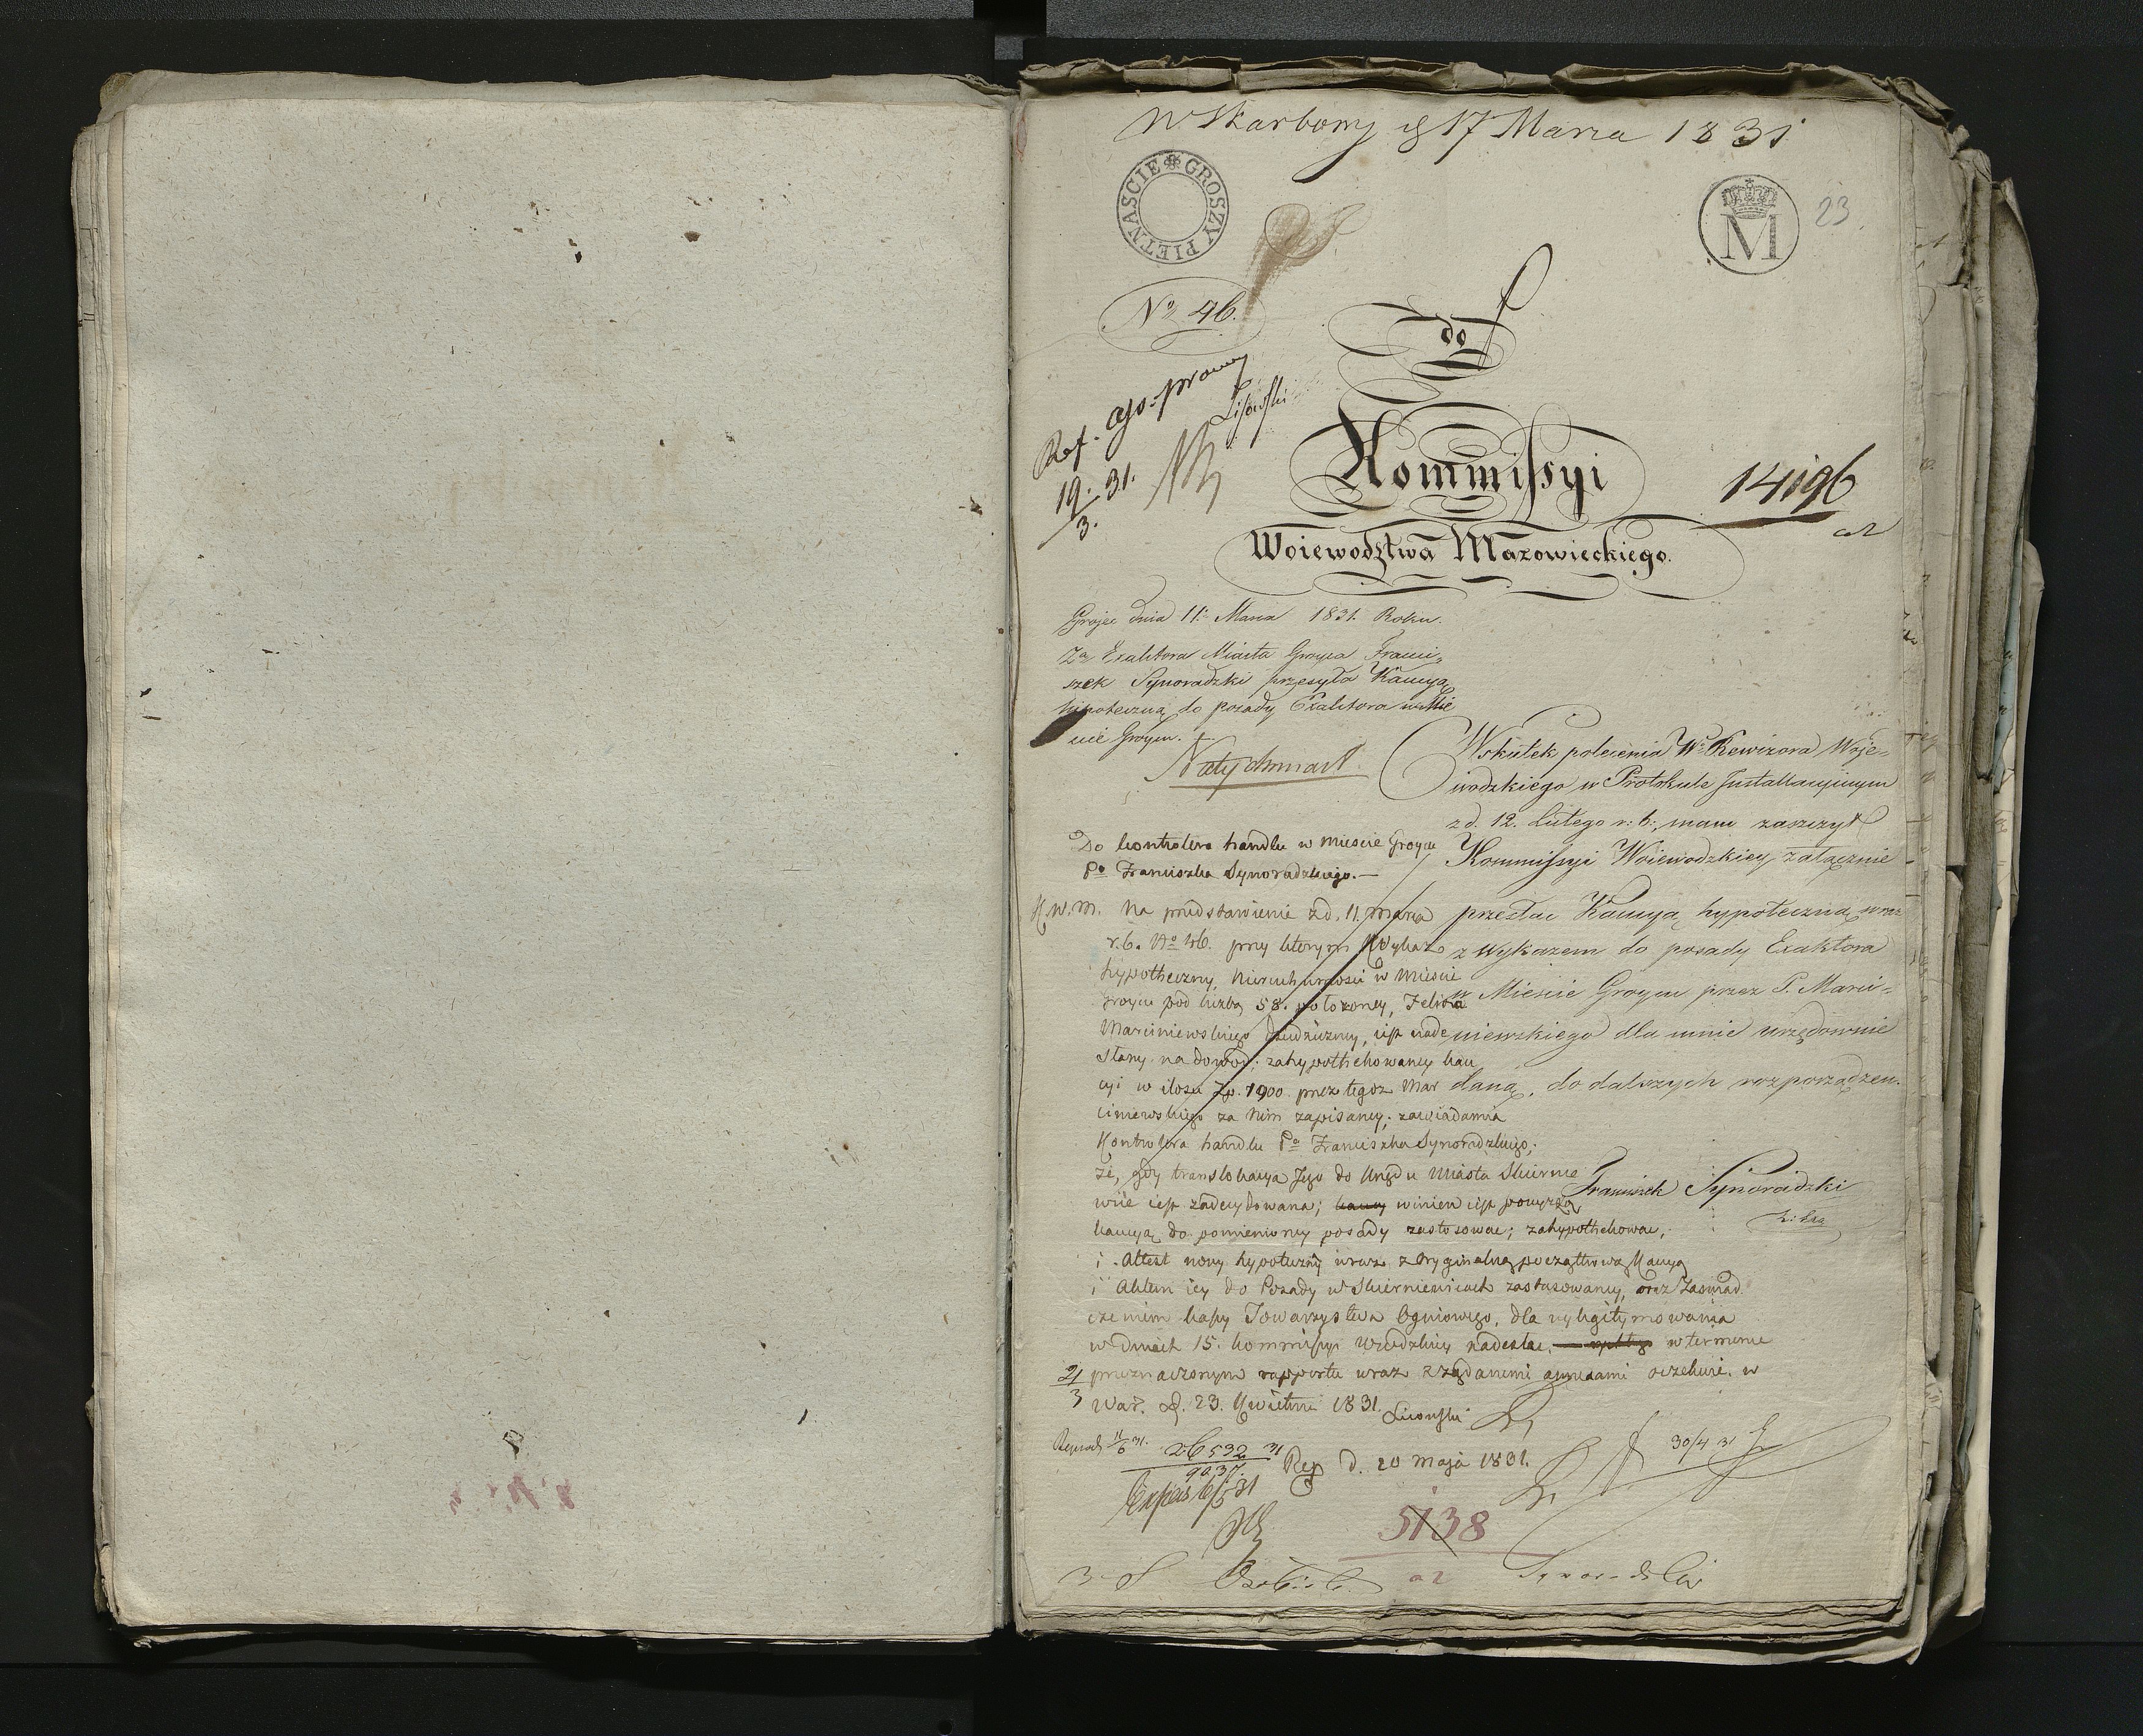 WSkarbowy d 17 Marca 1831
GROSZY PIETNASCIE
M
23
No 46.
do
Ref.
Lisowski
19/3. 31.
Kommissyi
14196
Woiewodztwa Mazowieckiego.
Grojec dnia 11. Marca 1831. Roku.
Za Exaktora Miasta Groyca Franci-
szek Synoradzki przesyła Kaucyą
hipoteczną do posady Exaktora w Mie
ście Groycu.
Natychmiast
Wskutek polecenia W. Rewizora Woje-
wodzkiego w Protokule Installacyinym
z d. 12. Lutego r: b:, mam zaszczyt
Kommissyi Woiewodzkiey załącznie
przesłać Kaucyą hypoteczną wraz
z Wykazem do posady Exaktora
w Mieście Groycu przez P. Marci-
niewskiego dla mnie urzędownie
daną, do dalszych rozporządzeń.
Franciszek Synoradzki
Do kontrolera handlu w mieście Groycu
Pa Franciszka Synoradzkiego.—
K.W.M. Na przedstawienie z d. 11. marca
r.b. No 46. przy którym Wykaz
hypotheczny Nieruchomości w Mieście
Groycu pod liczbą 58. położoney, Felixa
Marciniewskiego dziedziczney, iest nade
słany na dowód zahypothekowaney kau
cyi w ilości Zp. 1900 przez tegoż Mar
ciniewskiego za Nim zapisaney; zawiadamia
Kontrolera handlu Pa Franciszka Synoradzkiego;
że, gdy translokacya Jego do Urzędu Miasta Skiernie
wic iest zadecydowana; winien iest powyższą
kaucyą do pomienioney posady zastosować; zahypothekować,
i Attest nowy hypoteczny wraz z oryginalną początkową Kaucyą
i Aktem iey do Posady w Skierniewicach zastosowaney, oraz Zaświad
czeniem kassy Towarzystwa Ogniowego, dla wylegitymowania
w dniach 15. kommissyi Wdzkiey nadesłać, w terminie
przeznaczonym rapportu wraz z żądanemi annexami oczekuie. w
21/3
War. d. 23. Kwietnia 1831.
Lisowski
26532
9037.
Rep d. 20 maja 1831.
30/4 31
Expens 6/5 31
5138
Synoradzki